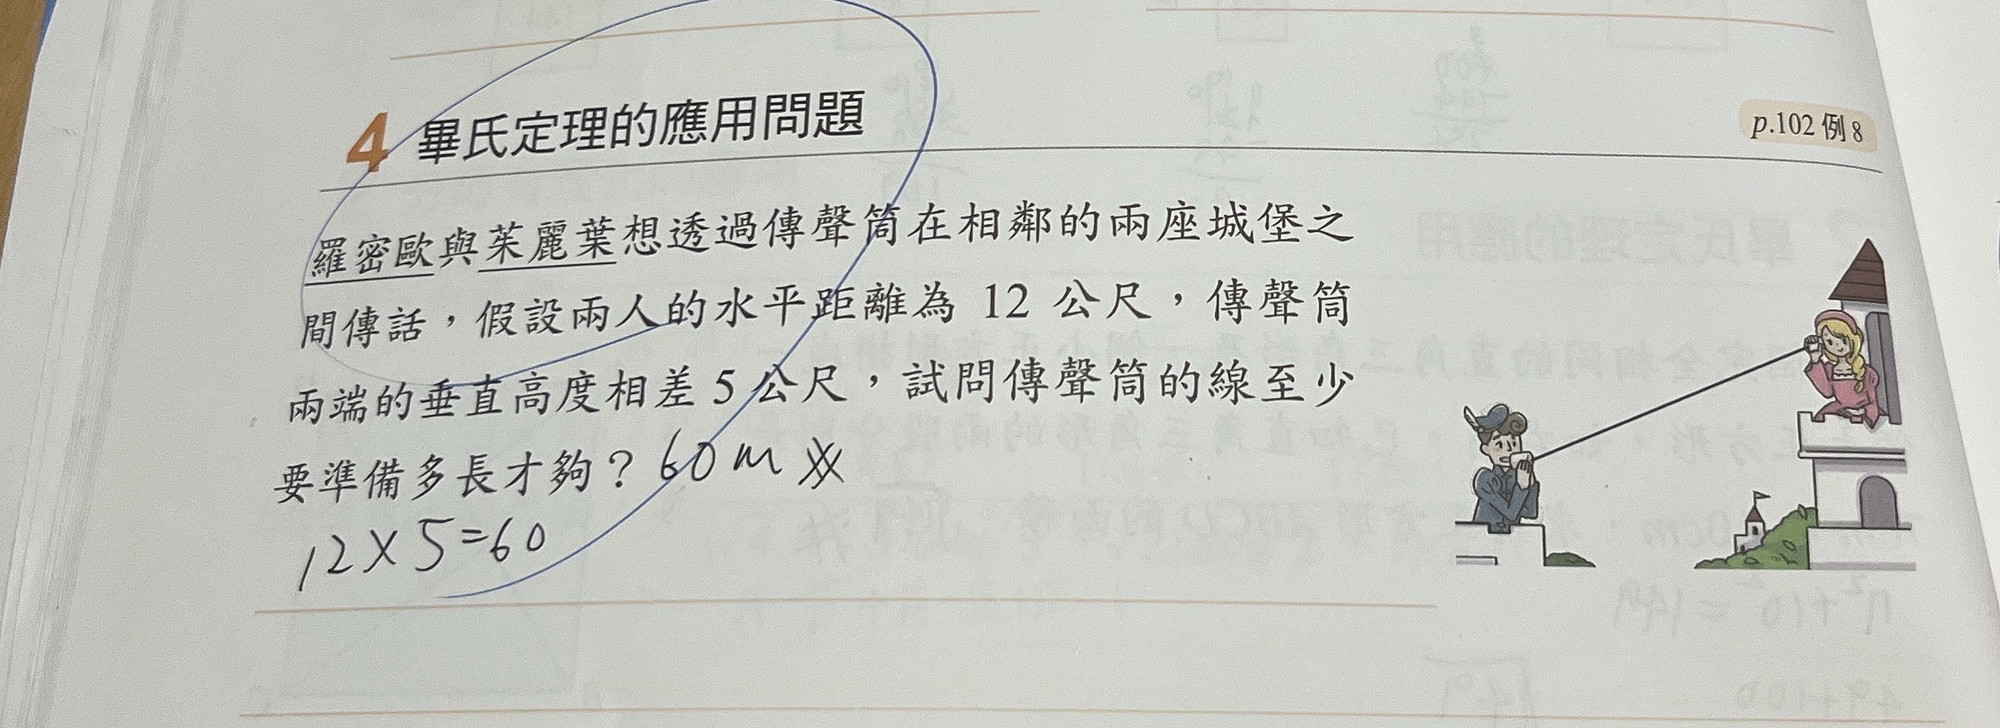 4 畢氏定理的應用問題
p.102 例 8
羅密歐與茱麗葉想透過傳聲筒在相鄰的兩座城堡之
間傳話，假設兩人的水平距離為 12 公尺，傳聲筒
兩端的垂直高度相差 5 公尺，試問傳聲筒的線至少
要準備多長才夠？60m
12×5=60